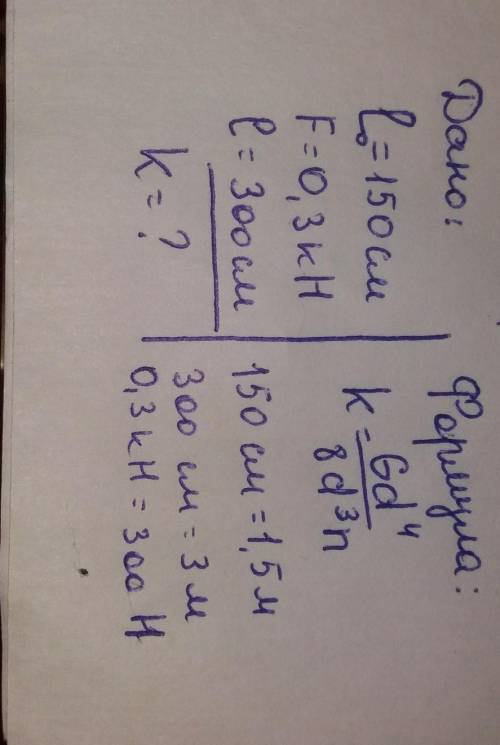 Дано:
l₀=150см
F=0,3кН
l=300см
k=?
Формула:
k=Gd⁴/8d³n
150см=1,5м
300см=3м
0,3кН=300Н